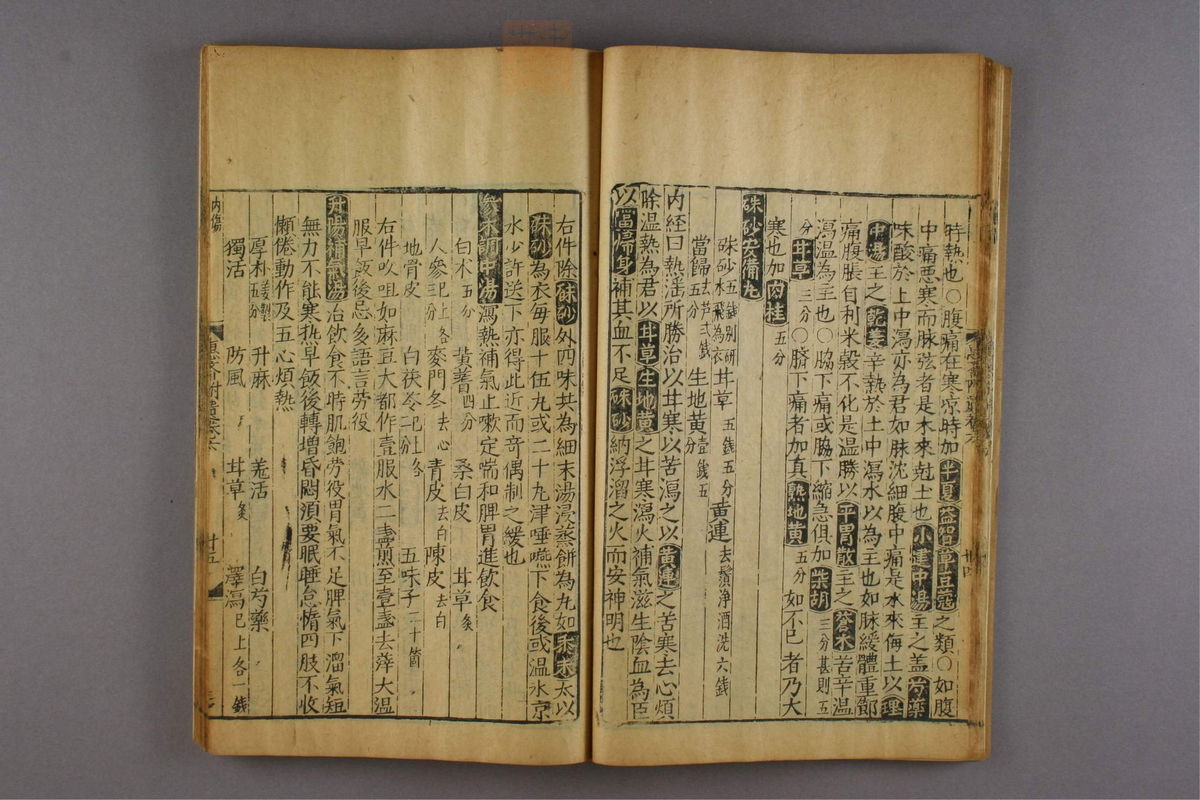 時熱也○腹痛在寒凉時加半夏益智草豆蔻之類○如腹
中痛惡寒而脉弦者是木來尅土也小建中湯主之盖芍藥
味酸於土中瀉木為君如脉沈細腹中痛是水來侮土以理
中湯主之乾姜辛熱於土中瀉水以為主也如脉緩體重節
痛腹脹自利米穀不化是温勝以平胃散主之蒼术苦辛温
瀉温為主也○脇下痛或脇下縮急俱加柴胡三分甚則五
分甘草三分○臍下痛者加真熟地黄五分如不已者乃大
寒也加肉桂五分
硃砂安備丸
硃砂五錢別研水飛為衣甘草五錢五分黄連去鬚淨酒洗六錢
當歸去芦弍錢五分生地黄壹錢五分
内経曰熱滛所勝治以甘寒以苦瀉之以黄連之苦寒去心煩
除温熱為君以甘草生地黄之甘寒瀉火補氣滋生陰血為臣
以當歸身補其血不足硃砂納浮溜之火而安神明也
右件除硃砂外四味共為細末湯浸蒸餅為丸如黍米太以
硃砂為衣毎服十伍丸或二十丸津唾嚥下食後或温水凉
水少許送下亦得此近而奇偶制之緩也
參术調中湯瀉熱補氣止嗽定喘和脾胃進飲食
白术五分 黄蓍四分 桑白皮 甘草炙
人參已上各三分 麥門冬去心 青皮去白 陳皮去白
地骨皮 白茯苓已上各二分 五味子二十箇
右件㕮咀如麻豆大都作壹服水二盞煎至壹盞去滓大温
服早飯後忌多語言勞役
升陽補氣湯治飲食不時肌飽勞役胃氣不足脾氣下溜氣短
無力不能寒热早飯後轉增昏悶湏要眠睡怠惰四肢不收
懶倦動作及五心煩熱
厚朴姜製五分 升麻 羌活 白芍藥
獨活 防風 甘草炙 澤瀉已上各一錢
内傷
十五